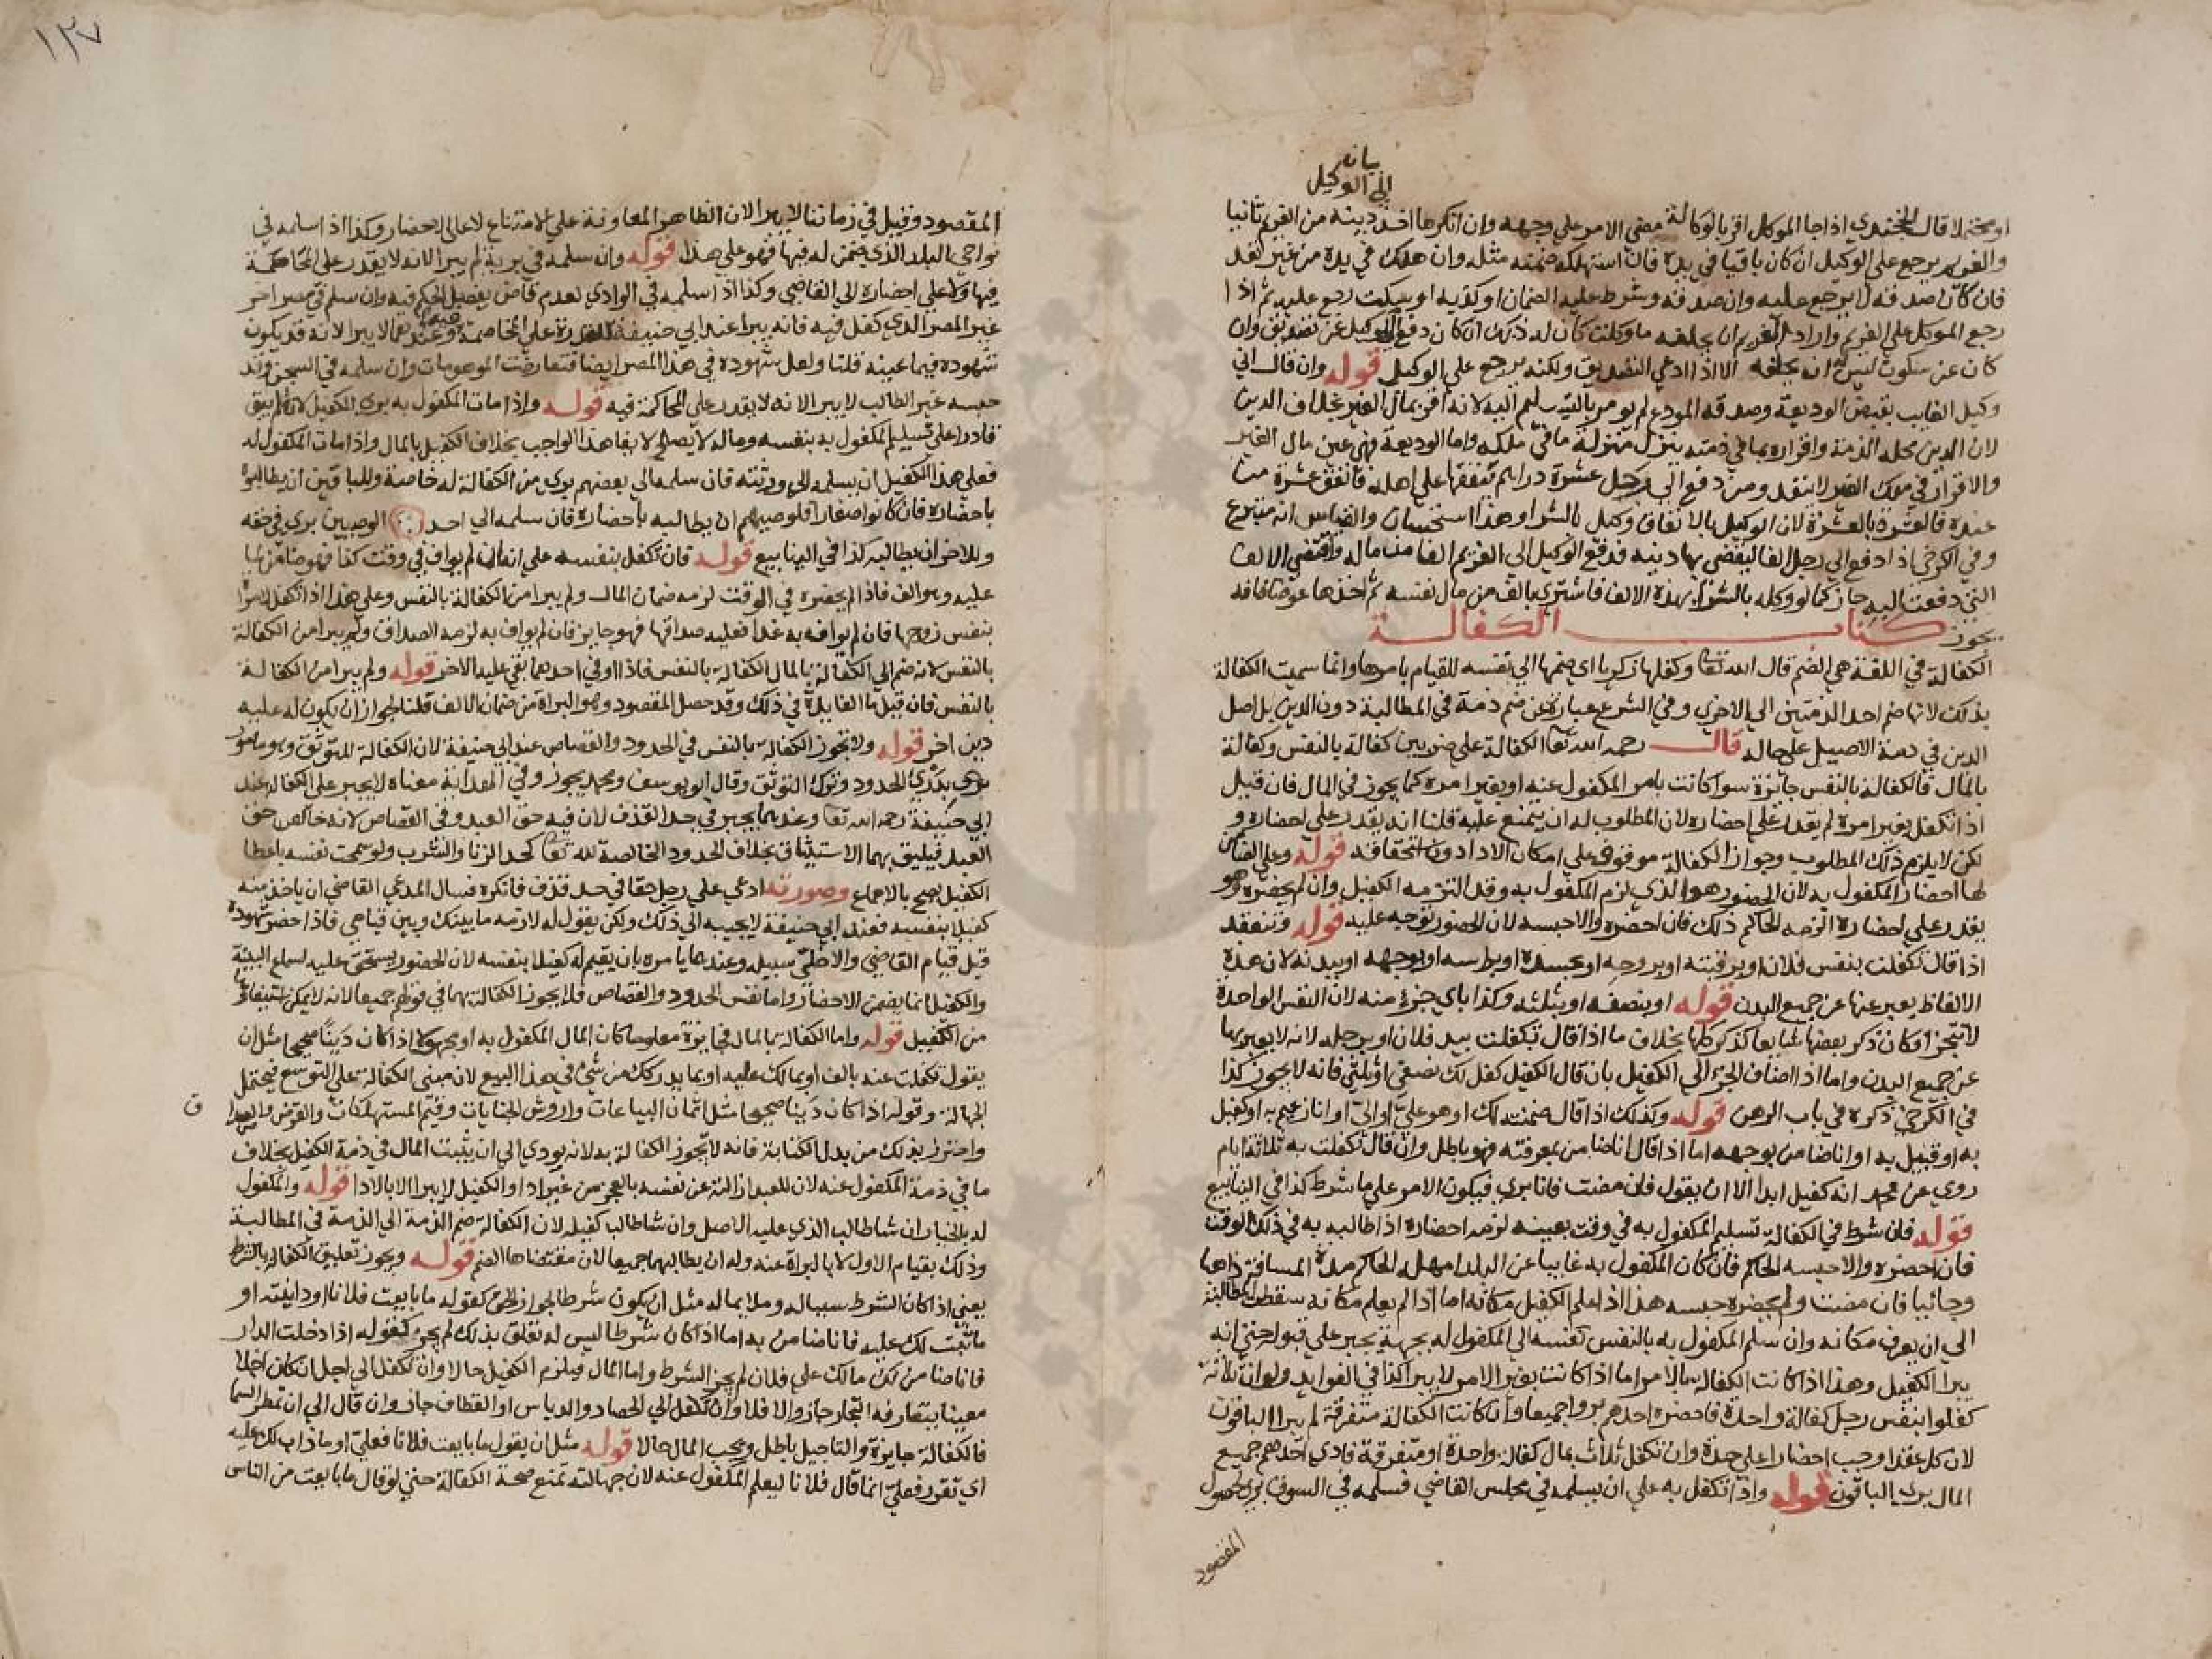 ١٢٧
بيانه
الى الوكيل
او محتملا قال الخجندي اذا جا الموكل اقر بالوكالة مضي الامر علي وجهه وان انكرها اخذ دينه من الغريم ثانيا
والغريم يرجع علي الوكيل ان كان باقيا في يده فان استهلكه ضمنه مثله وان هلك في يده من غير تعد
فان كان صدقه لا يرجع عليه وان صدقه وشرط عليه الضمان او كذبه او سكت رجع عليه ثم اذا
رجع الموكل علي الغريم واراد الغريم ان يحلفه ما وكلت كان له ذلك ان كان دفع الي الوكيل عن تصديق وان
كان عن سكوت ليس له ان يحلفه الا اذا ادعي التصديق ولكنه يرجع علي الوكيل قوله وان قال اني
وكيل الغايب بقبض الوديعة وصدقه المودع لم يومر بالتسليم اليه لانه اقر بمال الغير بخلاف الدين
لان الدين محله الذمة واقراره بما في ذمته ينزل منزلة ما في ملكه واما الوديعة فهي عين مال الغير
والاقرار في ملك الغير لا ينفد ومن دفع الي رجل عشرة دراهم ينفقها علي اهله فانفق عشرة من
عنده فالعشرة بالعشرة لان الوكيل بالانفاق وكيل بالشرا وهذا استحسان والقياس انه متبرع
وفي الكرخي اذا دفع الي رجل الفا ليقضي بها دينه فدفع الوكيل الى الغريم الفا من ماله واقتضي الالف
التي دفعت اليه جاز كما لو وكله بالشراء بهذه الالف فاشتري بالف من مال نفسه ثم اخذها عوضا فانه
يجوز كتاب الكفالة
الكفالة في اللغة هي الضم قال الله تعا وكفلها زكريا اي ضمها الي نفسه للقيام بامرها وانما سميت الكفالة
بذلك لانها ضم احد الذمتين الي الاخري وفي الشرع عبارة عن ضم ذمة في المطالبة دون الدين بل اصل
الدين في ذمة الاصيل علي حاله قال رحمه الله تعا الكفالة علي ضربين كفالة بالنفس وكفالة
بالمال فالكفالة بالنفس جائزة سوا كانت بامر المكفول عنه او بغير امره كما يجوز في المال فان قيل
اذا تكفل بغير امره لم يقدر علي احضاره لان المطلوب له ان يمتنع عليه قلنا انه يقدر علي احضاره و
لكن لا يلزم ذلك المطلوب وجواز الكفالة موقوف علي امكان الادا دون استحقاقه قوله وعلي الضامن
لها احضار المكفول به لان الحضور هو الذي لزم المكفول به وقد التزمه الكفيل وان لم يحضره وهو
يقدر علي احضاره الزمه الحاكم ذلك فان احضره والا حبسه لان الحضور توجه عليه قوله وتنعقد
اذا قال تكفلت بنفس فلان او برقبته او بروحه او بجسده او براسه او بوجهه او ببدنه لان هذه
الالفاظ يعبر عنها عن جميع البدن قوله او بنصفه او بثلثه وكذا باي جزء منه لان النفس الواحدة
لا تتجزا فكان ذكر بعضها شايعا كذكر كلها بخلاف ما اذا قال تكفلت بيد فلان او برجله لانه لا يعبر بها
عن جميع البدن واما اذا اضاف الجزء الي الكفيل بان قال الكفيل كفل لك نصفي او ثلثي فانه لا يجوز كذا
في الكرخي ذكره في باب الرهن قوله وكذلك اذا قال ضمنته لك او هو علي او الي او انا زعيم به او كفيل
به او قبيل به او انا ضامن بوجهه اما اذا قال انا ضامن بمعرفته فهو باطل وان قال تكفلت به ثلاثة ايام
روي عن محمد انه كفيل ابدا الا ان يقول فان مضت فانا بري فيكون الامر علي ما شرط كذا في الينابيع
قوله فان شرط في الكفالة تسليم المكفول به في وقت بعينه لزمه احضاره اذا طالبه به في ذلك الوقت
فان احضره والا حبسه الحاكم فان كان المكفول به غايبا عن البلد امهله الحاكم مدة المسافة ذاهبا
وجائيا فان مضت ولم يحضره حبسه هذا اذا علم الكفيل مكانه اما اذا لم يعلم مكانه سقطت المطالبة
الي ان يعرف مكانه وان سلم المكفول به بالنفس نفسه الي المكفول له بجهة يجبر علي قبوله حتي انه
يبرا الكفيل وهذا اذا كانت الكفالة بالامر اما اذا كانت بغير الامر لا يبرا كذا في الفوايد ولو ان ثلاثة
كفلوا بنفس رجل كفالة واحدة فاحضره احدهم بروا جميعا وان كانت الكفالة متفرقة لم يبرا الباقون
لان كل عقد اوجب احضارا علي حدة وان تكفل ثلاث بمال كفالة واحدة او متفرقة فادي احدهم جميع
المال بري الباقون قوله واذا تكفل به علي ان يسلمه في مجلس القاضي فسلمه في السوق بري لحصول
المقصود
المقصود وقيل في زماننا لا يبرا لان الظاهر المعاونة علي الامتناع لا علي الاحضار وكذا اذا سلمه في
نواحي البلد الذي ضمن له فيها فهو علي هذا قوله وان سلمه في برية لم يبرا لانه لا يقدر علي المخاصمة
فيها ولا علي احضاره الي القاضي وكذا اذا سلمه في الوادي لعدم قاض يفصل الحكم فيه وان سلم في مصر اخر
غير المصر الذي كفل فيه فانه يبرا عند ابي حنيفة للقدرة علي المخاصمة فيه وعندهما لا يبرا لانه قد يكون
شهوده فيما عينه قلنا ولعل شهوده في هذا المصر ايضا فتعارضت الموهومات وان سلمه في السجن وقد
حبسه غير الطالب لا يبرا لانه لا يقدر علي المحاكمة فيه قوله واذا مات المكفول به بري الكفيل لانه لم يبق
قادرا علي تسليم المكفول به بنفسه وماله لا يصلح لايفا هذا الواجب بخلاف الكفيل بالمال واذا مات المكفول له
فعلي هذا الكفيل ان يسلمه الي ورثته فان سلمه الي بعضهم بري من الكفالة له خاصة وللباقين ان يطالبوه
باحضاره فان كانوا صغارا فلوصيهم ان يطالبه باحضاره فان سلمه الي احد الوصيين بري في حقه
وللاخر ان يطالبه كذا في الينابيع قوله فان تكفل بنفسه علي انه ان لم يواف في وقت كذا فهو ضامن لما
عليه وهو الف فاذا لم يحضره في الوقت لزمه ضمان المال ولم يبرا من الكفالة بالنفس وعلي هذا اذا تكفل لامراة
بنفس زوجها فان لم يوافه به غدا فعليه صداقها فهو جايز فان لم يواف به لزمه الصداق ولم يبرا من الكفالة
بالنفس لانه ضم الي الكفالة بالمال الكفالة بالنفس فاذا اوفي احدهما بقي عليه الاخر قوله ولم يبرا من الكفالة
بالنفس فان قيل ما الفايدة في ذلك وقد حصل المقصود وهو البراة من ضمان الالف قلنا لجواز ان يكون له عليه
دين اخر قوله ولا تجوز الكفالة بالنفس في الحدود والقصاص عند ابي حنيفة لان الكفالة للتوثق وهو مامور
بدرئ الحدود وترك التوثق وقال ابو يوسف ومحمد يجوز وفي الهداية معناه لا يجبر علي الكفالة عند
ابي حنيفة رحمه الله تعا وعندهما يجبر في حد القذف لان فيه حق العبد وفي القصاص لانه خالص حق
العبد فيليق بهما الاستيثاق بخلاف الحدود الخالصة لله تعا كحد الزنا والشرب ولو سمحت نفسه باعطا
الكفيل يصح بالاجماع وصورته ادعي علي رجل حقا في حد قذف فانكره فسال المدعي القاضي ان ياخذ منه
كفيلا بنفسه فعند ابي حنيفة لا يجيبه الي ذلك ولكن يقول له لازمه ما بينك وبين قيامي فاذا احضر شهوده
قبل قيام القاضي والا خلي سبيله وعندهما يامره بان يقيم له كفيلا بنفسه لان الحضور يستحق عليه لسماع البينة
والكفيل انما يضمن الاحضار واما نفس الحدود والقصاص فلا يجوز الكفالة بهما في قولهم جميعا لانه لا يمكن استيفاوها
من الكفيل قوله واما الكفالة بالمال فجايزة معلوما كان المال المكفول به او مجهولا اذا كان دينا صحيحا مثل ان
يقول تكفلت عنه بالف او بما لك عليه او بما يدركك من شئ في هذا البيع لان مبني الكفالة علي التوسع فيحتمل
الجهالة وقوله اذا كان دينا صحيحا مثل اثمان البياعات واروش الجنايات وقيم المستهلكات والقرض والصداق
واحترز بذلك من بدل الكتابة فانه لا تجوز الكفالة به لانه يودي الي ان يثبت المال في ذمة الكفيل بخلاف
ما في ذمة المكفول عنه لان للعبد ازالته عن نفسه بالعجز من غير ادا والكفيل لا يبرا الا بالادا قوله والمكفول
له بالخيار ان شا طالب الذي عليه الاصل وان شا طالب كفيله لان الكفالة ضم الذمة الي الذمة في المطالبة
وذلك بقيام الاول لا بالبراة عنه وله ان يطالبهما جميعا لان مقتضاها الضم قوله ويجوز تعليق الكفالة بالشرط
يعني اذا كان الشرط سببا له وملايما له مثل ان يكون شرطا لوجوب الحق كقوله ما بايعت فلانا او داينته او
ما ثبت لك عليه فانا ضامن به اما اذا كان شرطا ليس له تعلق بذلك لم يجز كقوله اذا دخلت الدار
فانا ضامن لك مالك علي فلان لم يجز الشرط واما المال فيلزم الكفيل حالا وان تكفل الي اجل ان كان اجلا
معينا يتعارفه التجار جاز والا فلا وان تكفل الي الحصاد والدياس او القطاف جاز وان قال الي ان تمطر السما
فالكفالة جايزة والتاجيل باطل ويجب المال حالا قوله مثل ان يقول ما بايعت فلانا فعلي او ما ذاب لك عليه
اي تقرر فعلي انما قال فلانا ليعلم المكفول عنه لان جهالته تمنع صحة الكفالة حتي لو قال ما بايعت من الناس
ق